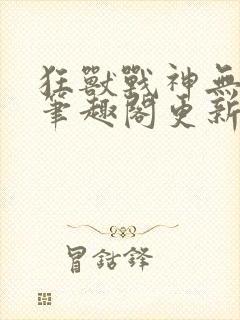 狂獸戰神無
筆趣閣更新
冒鈷鋒